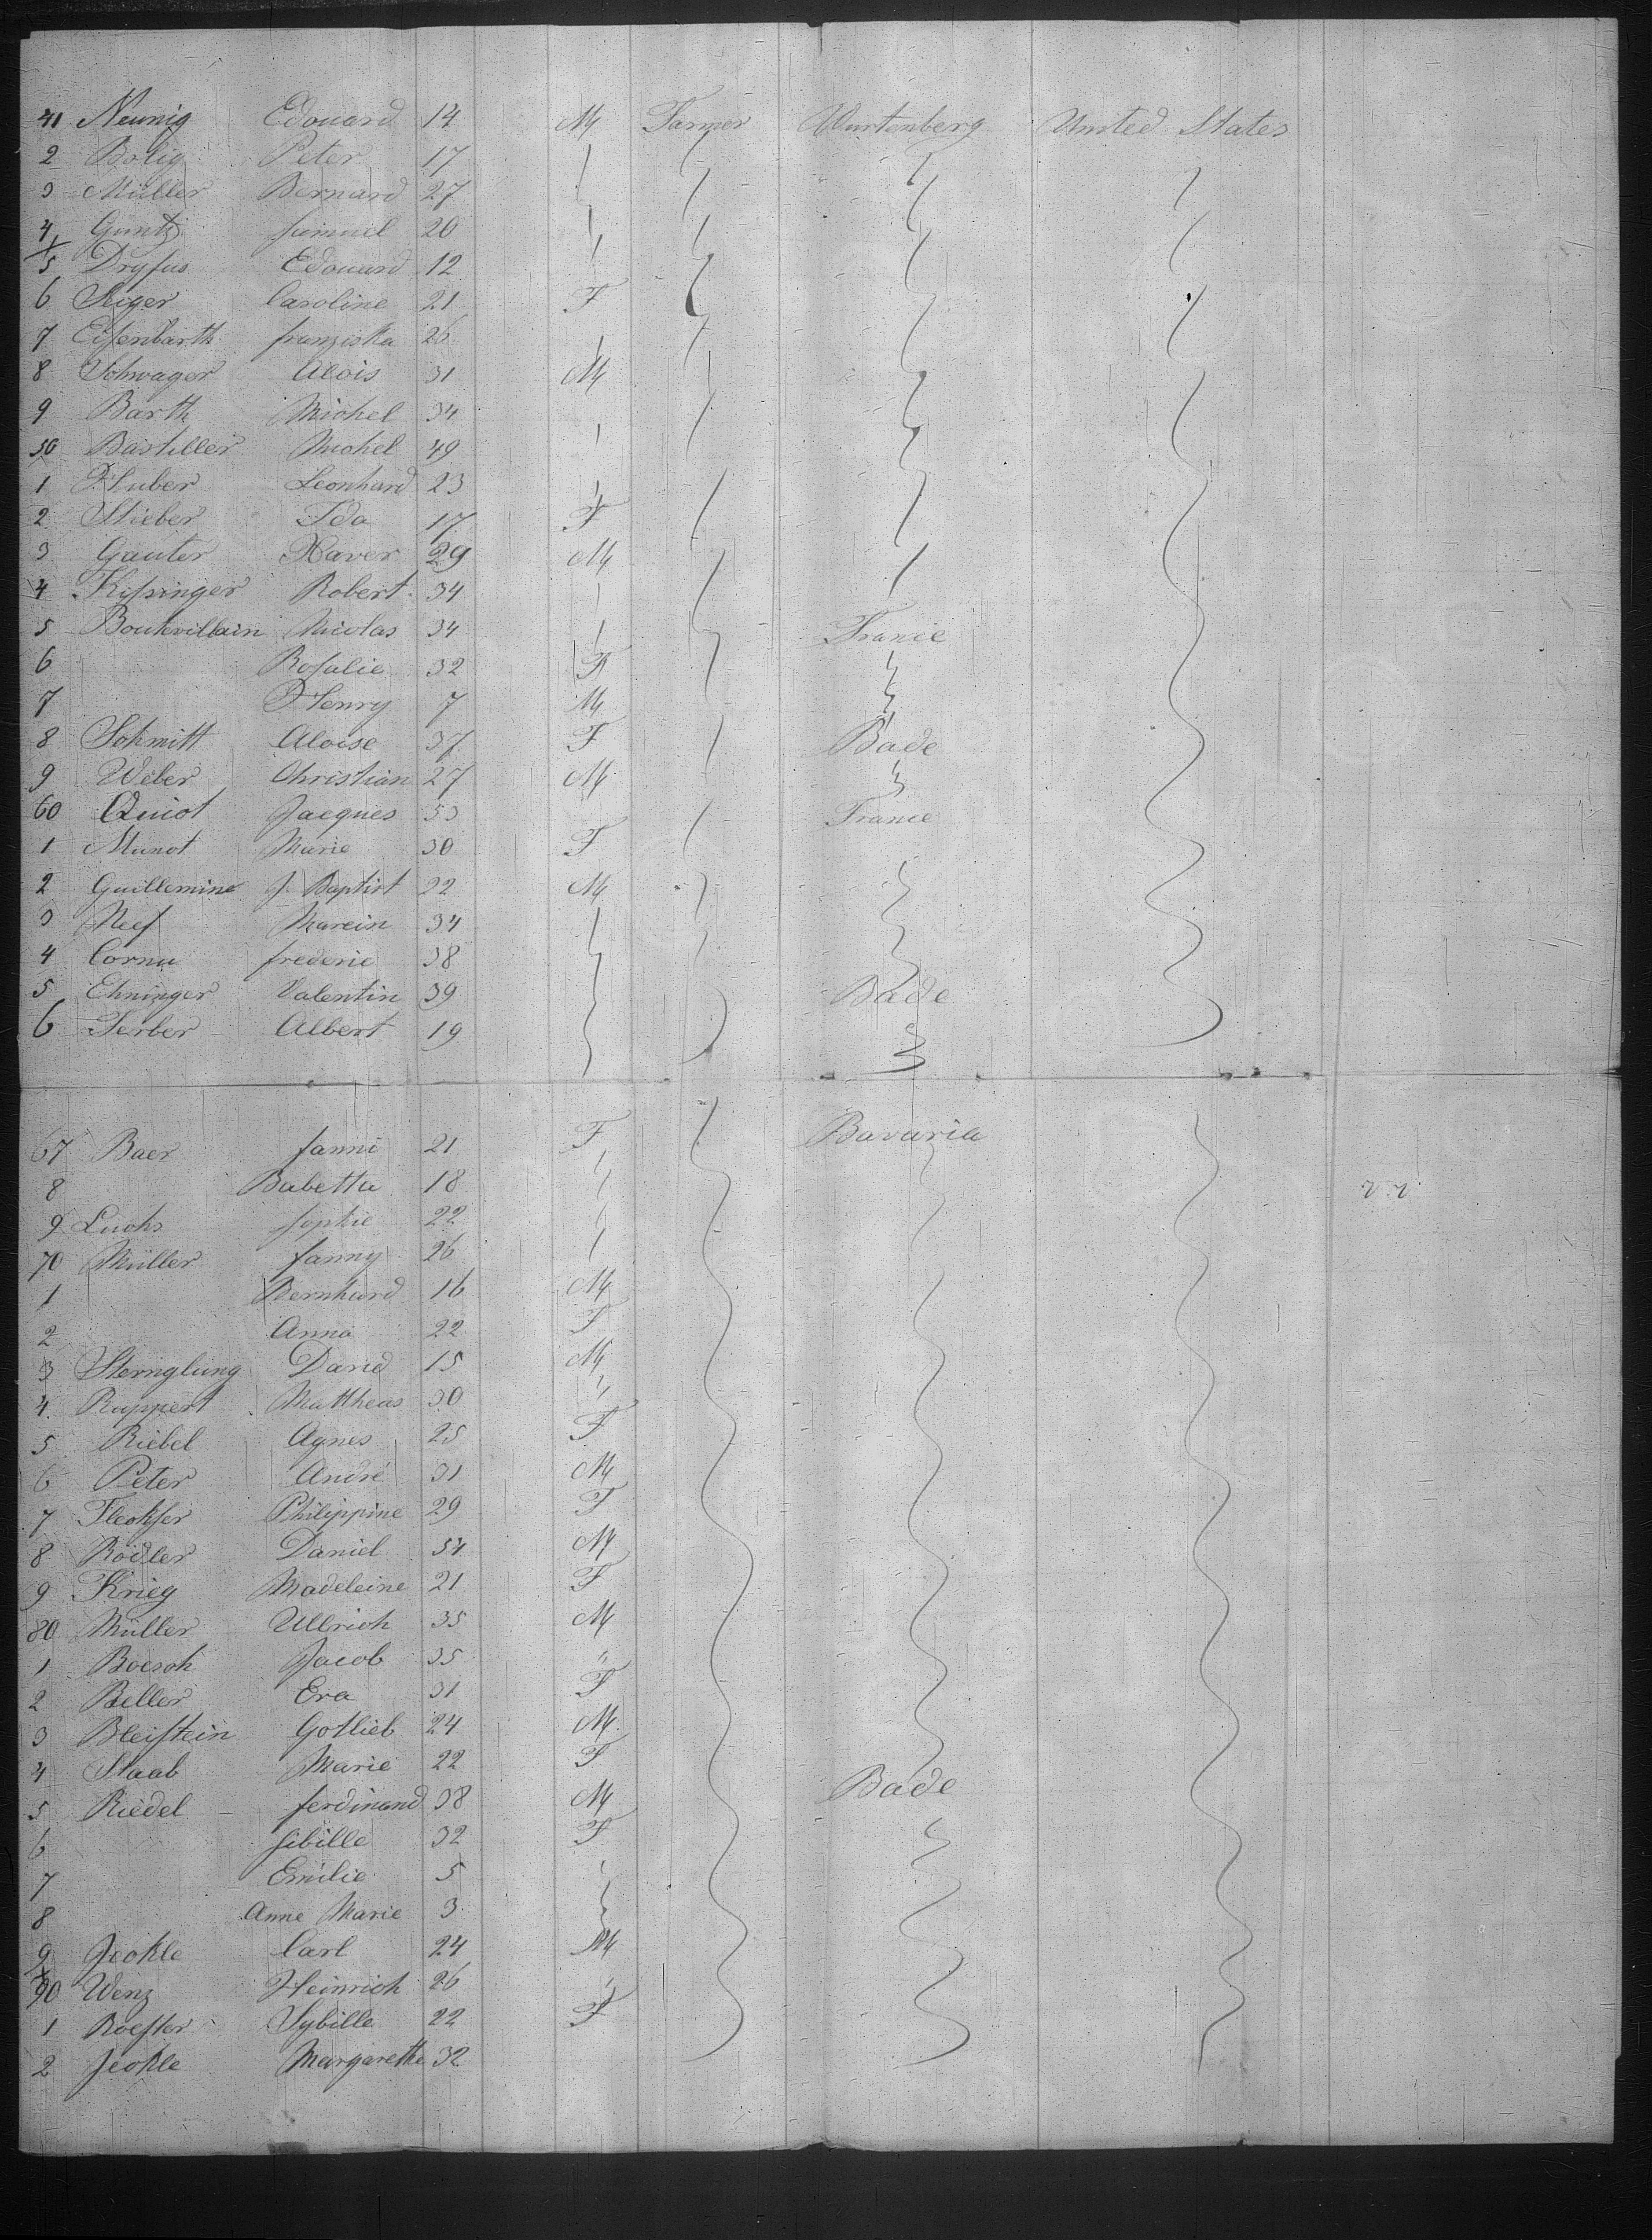 41 Neunig Edouard 14 M Farmer Wurtenberg United States
2 Bolig Peter 17
3 Müller Bernard 27
4 Guntz Samuel 20
5 Dryfus Edouard 12
6 Seiger Caroline 21 F
7 Eisenbarth franziska 26
8 Schwager Alois 31 M
9 Barth Michel 34
50 Bastiller Michel 49
1 Huber Leonhard 23
2 Stieber Ida 17 F
3 Gauter Xaver 29 M
4 Kissinger Robert 34
5 Boutevillain Nicolas 34 France
6 Rosalie 32 F
7 Henry 7 M
8 Schmitt Aloise 37 F Bade
9 Weber Christian 27 M
60 Quiot Jacques 53 France
1 Munot Marie 30 F
2 Guillemine J. Baptist 22 M
3 Neef Marcin 34
4 Cornu frederic 38
5 Ehninger Valentin 39 Bade
6 Ferber Albert 19
67 Baer fanni 21 F Bavaria
8 Babetta 18
9 Luchs Sophie 22
70 Müller fanny 26
1 Bernhard 16 M
2 Anna 22 F
3 David 15 M
4 Ruppert Mattheus 30 "
5 Riebel Agnes 25 F
6 Peter André 31 M
7 Philippine 29 F
8 Rödler Daniel 54 M
9 Krieg Madeleine 21 F
80 Müller Ullrich 35 M
1 Boesch Jacob 35 "
2 Beller Eva 31 F
3 Bleistein Gotlieb 24 M
4 Staab Marie 22 F
5 Riedel ferdinand 38 M Bade
6 Sibille 32 F
7 Emilie 5
8 Anne Marie 3
9 Jeckle Carl 24 M
90 Wenz Heinrich 26 "
1 Roester Sybille 22 F
2 Jeckle Margarethe 32